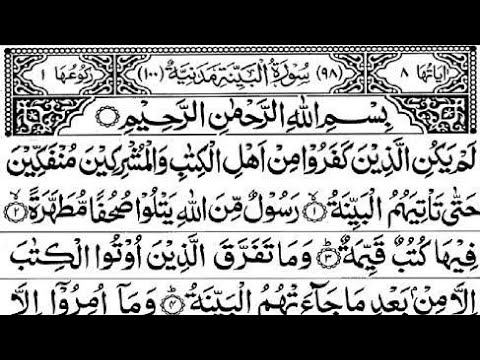 اٰیَاتُهَا ۸ (۹۸) سُوْرَةُ الْبَیِّنَةِ مَدَنِیَّةٌ (۱۰۰) رُكُوْعُهَا ۱
بِسْمِ اللهِ الرَّحْمٰنِ الرَّحِیْمِ
لَمْ یَكُنِ الَّذِیْنَ كَفَرُوْا مِنْ اَهْلِ الْكِتٰبِ وَالْمُشْرِكِیْنَ مُنْفَكِّیْنَ
حَتّٰى تَاْتِیَهُمُ الْبَیِّنَةُ ۙ﴿۱﴾ رَسُوْلٌ مِّنَ اللهِ یَتْلُوْا صُحُفًا مُّطَهَّرَةً ۙ﴿۲﴾
فِیْهَا كُتُبٌ قَیِّمَةٌ ؕ﴿۳﴾ وَمَا تَفَرَّقَ الَّذِیْنَ اُوْتُوا الْكِتٰبَ
اِلَّا مِنْۢ بَعْدِ مَا جَآءَتْهُمُ الْبَیِّنَةُ ؕ﴿۴﴾ وَمَاۤ اُمِرُوْۤا اِلَّا